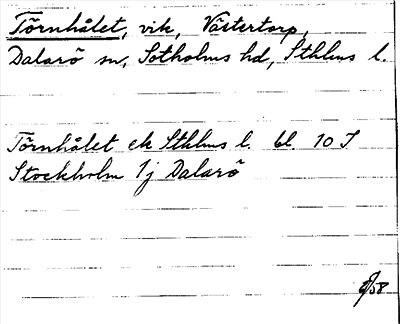 Törnhålet, vik, Västertorp,
Dalarö sn, Sotholms hd, Sthlms l.
Törnhålet ek Sthlms l. bl. 10 S
Stockholm 1j Dalarö
/58